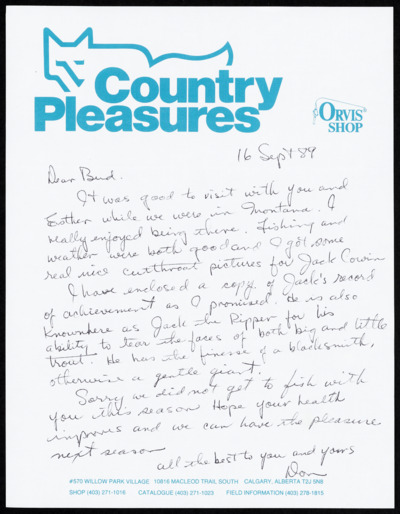 Country
Pleasures
ORVIS®
SHOP
16 Sept 89
Dear Bud.
It was good to visit with you and
Esther while we were in Montana. I
really enjoyed being there. Fishing and
weather were both good and I got some
real nice cutthroat pictures for Jack Cowin
I have enclosed a copy of Jack's record
of achievement as I promised. He is also
known here as Jack the Ripper for his
ability to tear the faces of both big and little
trout. He has the finesse of a blacksmith,
otherwise a gentle giant.
Sorry we did not get to fish with
you this season Hope your health
improves and we can have the pleasure
next season
all the best to you and yours
Don
#570 WILLOW PARK VILLAGE 10816 MACLEOD TRAIL SOUTH CALGARY, ALBERTA T2J 5N8
SHOP (403) 271-1016 CATALOGUE (403) 271-1023 FIELD INFORMATION (403) 278-1815